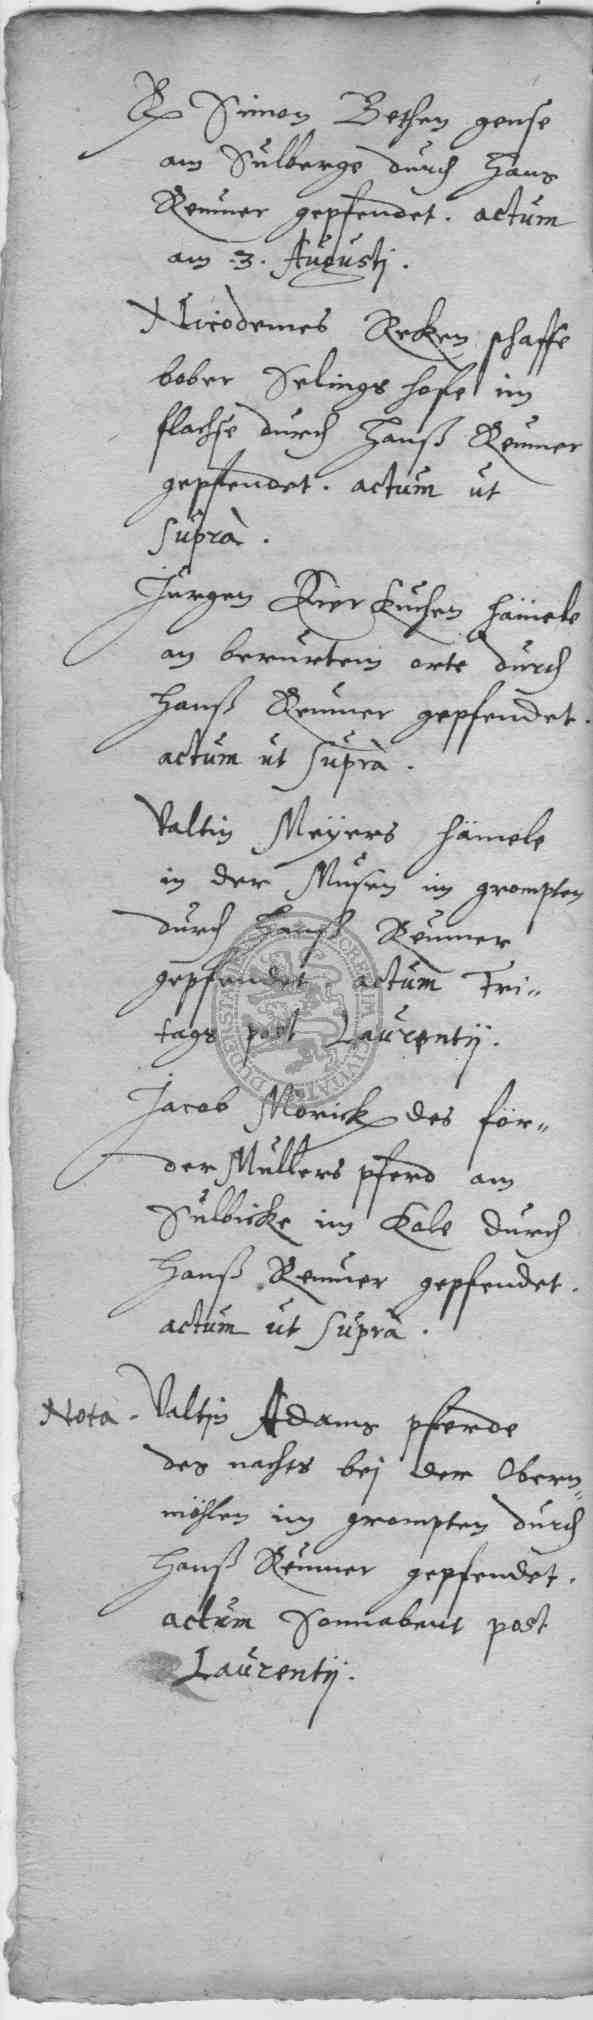 Simon Bethen gense
am Sulberge durch Hans
Remmer gepfendet. actum
am .3. Augusti.
Nicodemes Reken schaffe
bober Selings hofe im
flachse durch Hanß Remmer
gepfendet. actum ut
suprà.
Jurgen Kierkuchen hämele
an berurtem orte durch
Hanß Remmer gepfendet.
actum ut suprà.
Valtin Meÿers hämele
in der Musen im grompten
durch Hanß Remmer
gepfendet. actum Fri=
tags post Laurentij.
Jacob Morick desför=
der Müllers pferd am
Sulbicke im Kale durch
Hanß Remmer gepfendet.
actum ut suprà.
Nota. Valtin Adams pferde
des nachts bej der Obern=
möhlen im grompten durch
Hanß Remmer gepfendet.
actum Sonnabent post
Laurentij.